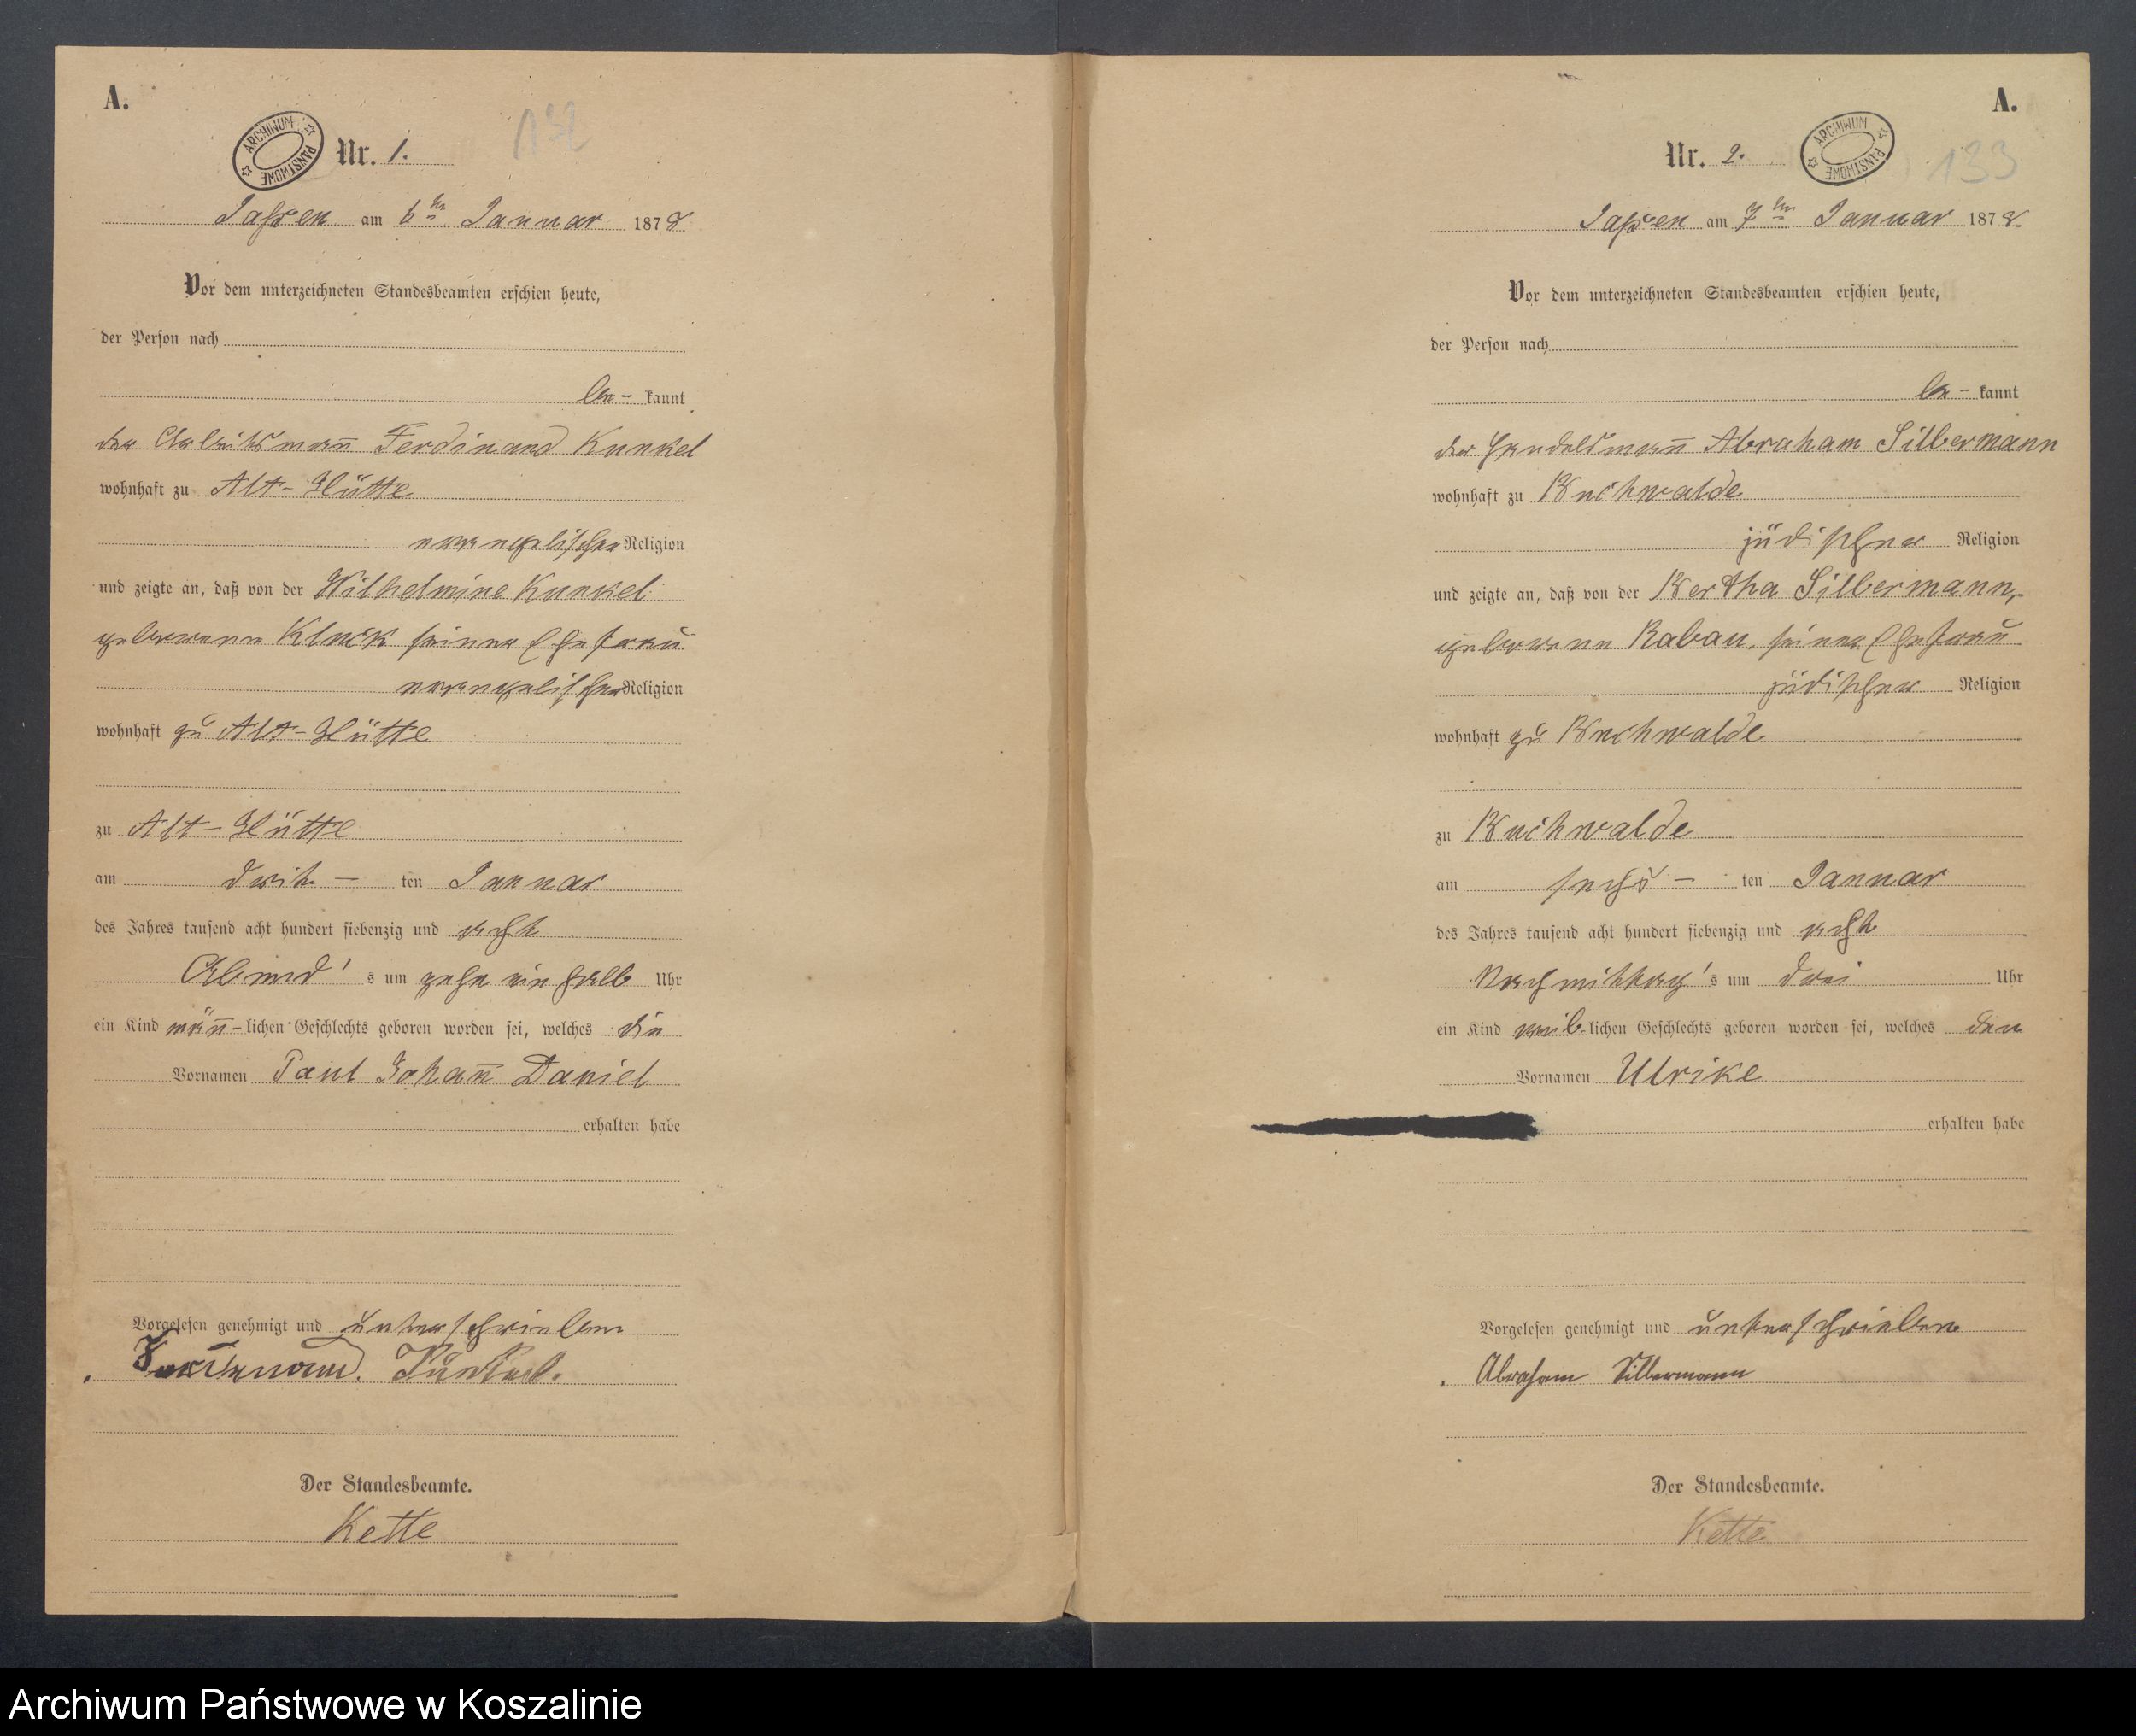 A.
ARCHIWUM PAŃSTWOWE
Nr. 1.
132
Jassen am 6ten Januar 1878
Vor dem unterzeichneten Standesbeamten erschien heute,
der Person nach
be- kannt
der Arbeitsmann̄ Ferdinand Kunkel
wohnhaft zu Alt-Hütte
evangelischer Religion
und zeigte an, daß von der Wilhelmine Kunkel
geborenen Kluck seiner Ehefrau
evangelischer Religion
wohnhaft zu Alt-Hütte
zu Alt-Hütte
am drit- ten Januar
des Jahres tausend acht hundert siebenzig und acht
Abend's um zehn ein halb Uhr
ein Kind män̄-lichen Geschlechts geboren worden sei, welches die
Vornamen Paul Johan̄ Daniel
erhalten habe
Vorgelesen genehmigt und unterschrieben
Ferdienand. Kunkel.
Der Standesbeamte.
Kette
A.
Nr. 2.
ARCHIWUM PAŃSTWOWE
133
Jassen am 7ten Januar 1878
Vor dem unterzeichneten Standesbeamten erschien heute,
der Person nach
be- kannt
der Handelsman̄ Abraham Silbermann
wohnhaft zu Buchwalde
jüdischer Religion
und zeigte an, daß von der Bertha Silbermann,
geborenen Rabau, seiner Ehefrau
jüdischer Religion
wohnhaft zu Buchwalde
zu Buchwalde
am sechs- ten Januar
des Jahres tausend acht hundert siebenzig und acht
Nachmittag's um drei Uhr
ein Kind weib-lichen Geschlechts geboren worden sei, welches den
Vornamen Ulrike
erhalten habe
Vorgelesen genehmigt und unterschrieben
Abraham Silbermann
Der Standesbeamte.
Kette
Archiwum Państwowe w Koszalinie